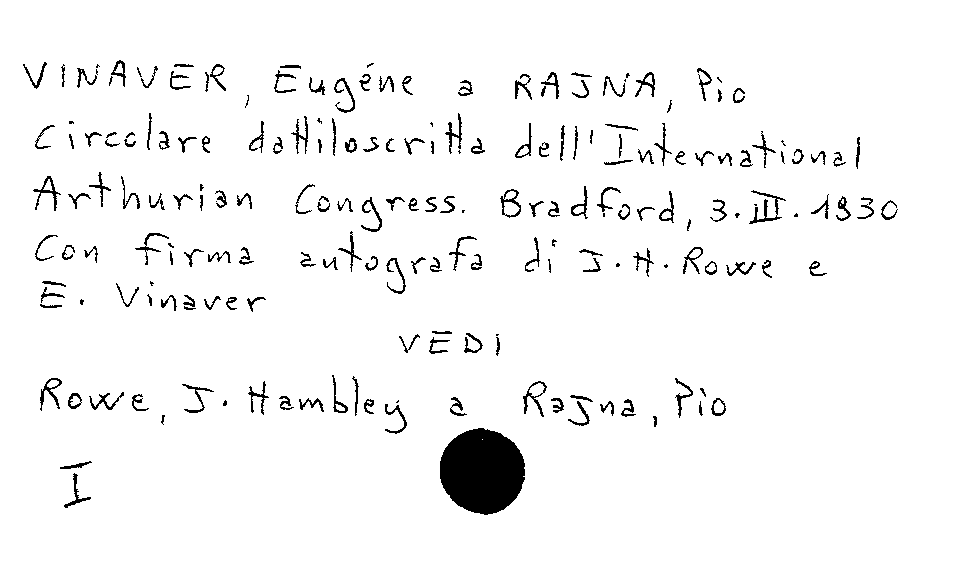 VINAVER, Eugéne a RAJNA, Pio
Circolare dattiloscritta dell'International
Arthurian Congress. Bradford, 3.III.1930
Con firma autografa di J.H. Rowe e
E. Vinaver
VEDI
Rowe, J. Hambley a Rajna, Pio
I